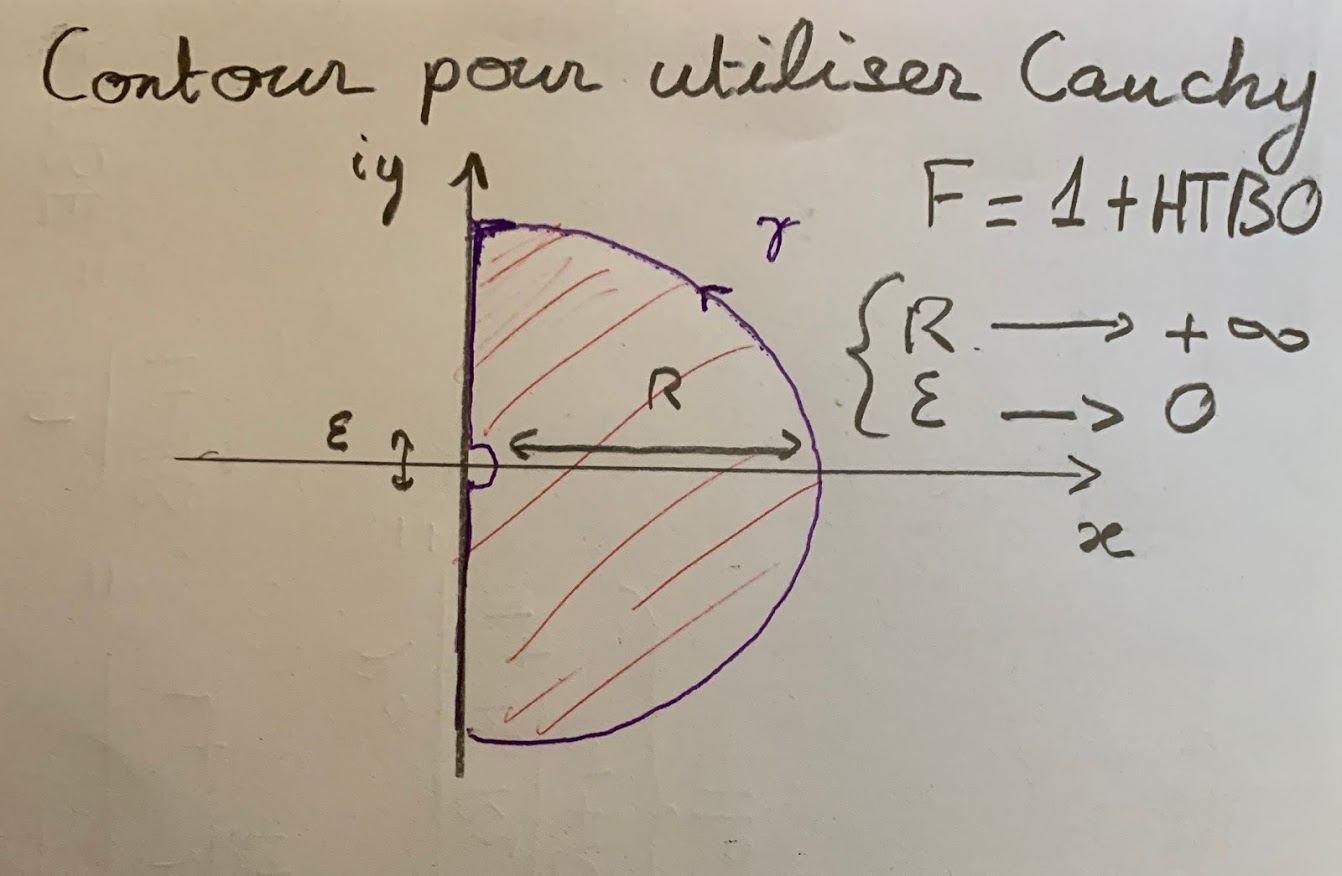 Contour pour utiliser Cauchy
iy
F = 1 + HTBO
γ
R → +∞
ε → 0
R
ε
x